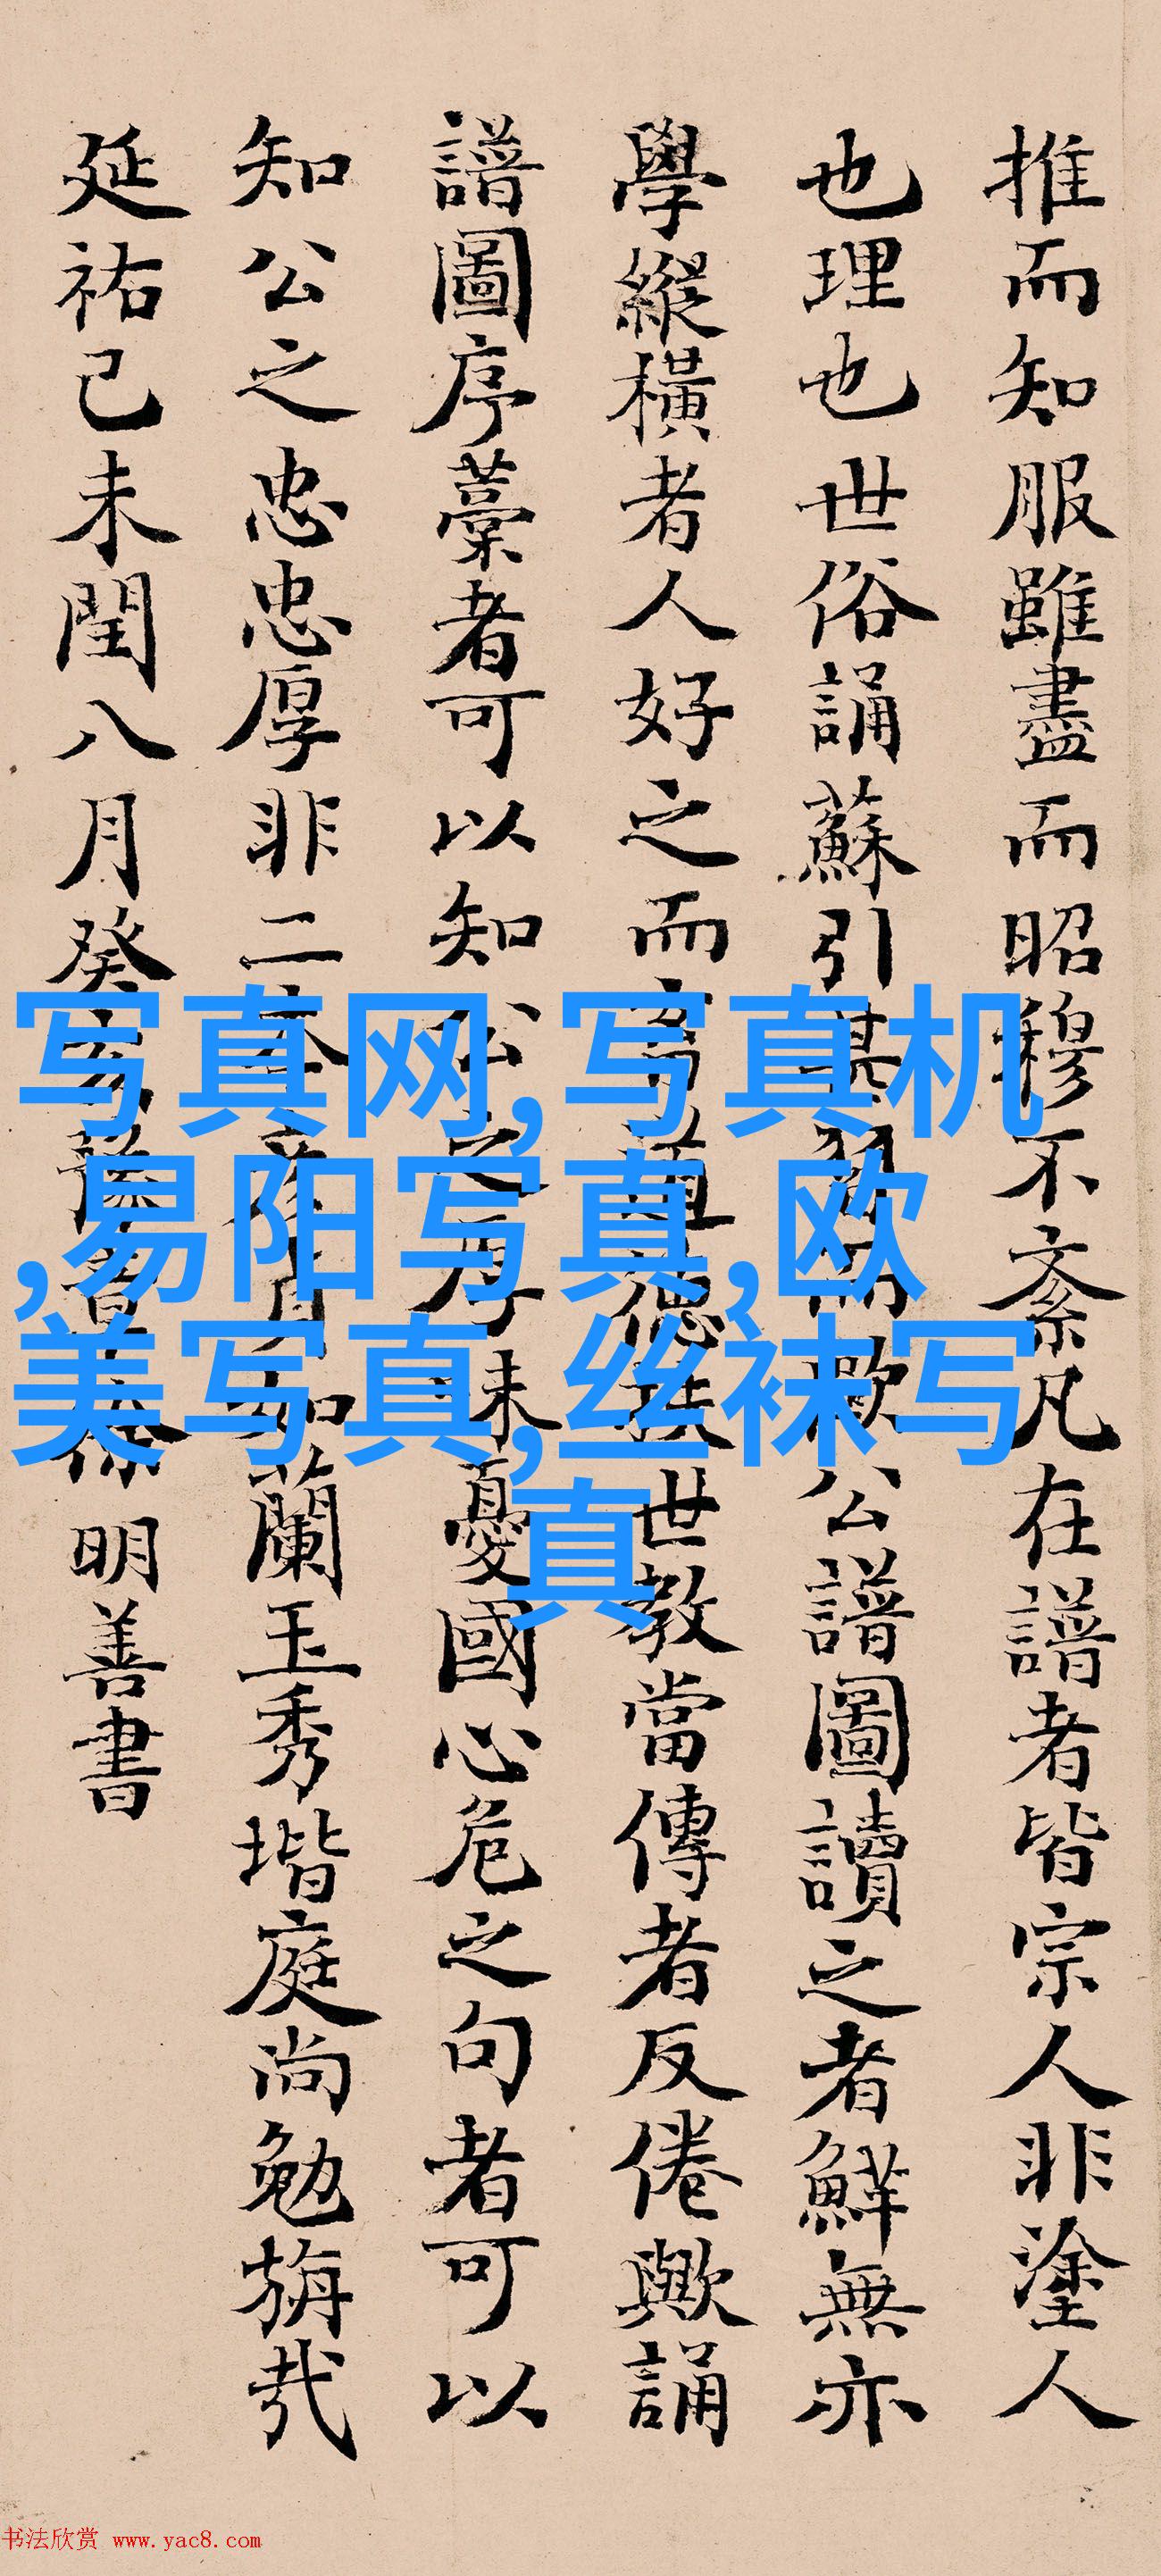 推而知服雖盡而昭穆不紊凡在譜者皆宗人非塗人
也理也世俗誦蘇引其習而歐公譜圖讀之者鮮無亦
學縱橫者人好之而言道德扶世教當傳者反倦歟誦
譜圖序藁者可以知公之厚味憂國心危之句者可以
知公之忠忠厚非二本
蘭玉秀堦庭尚勉旃哉
延祐己未閏八月癸
明善書
写真网,写真机
,易阳写真,欧
美写真,丝袜写
真
书法欣赏 www.yac8.com